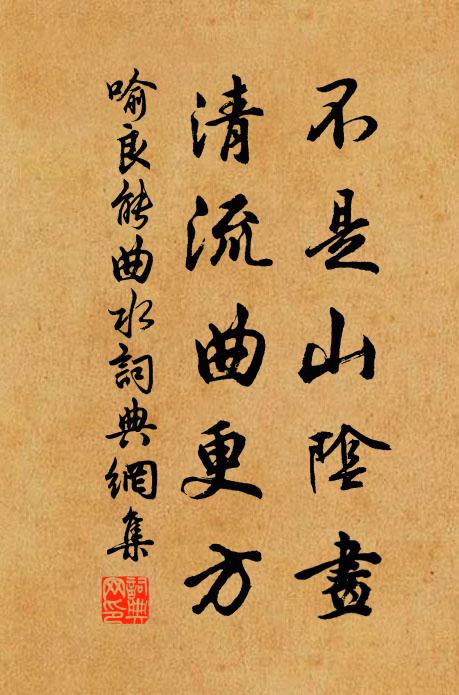 不是山陰畫
清流曲更方
喻良能曲水詞典網集
詞典网印